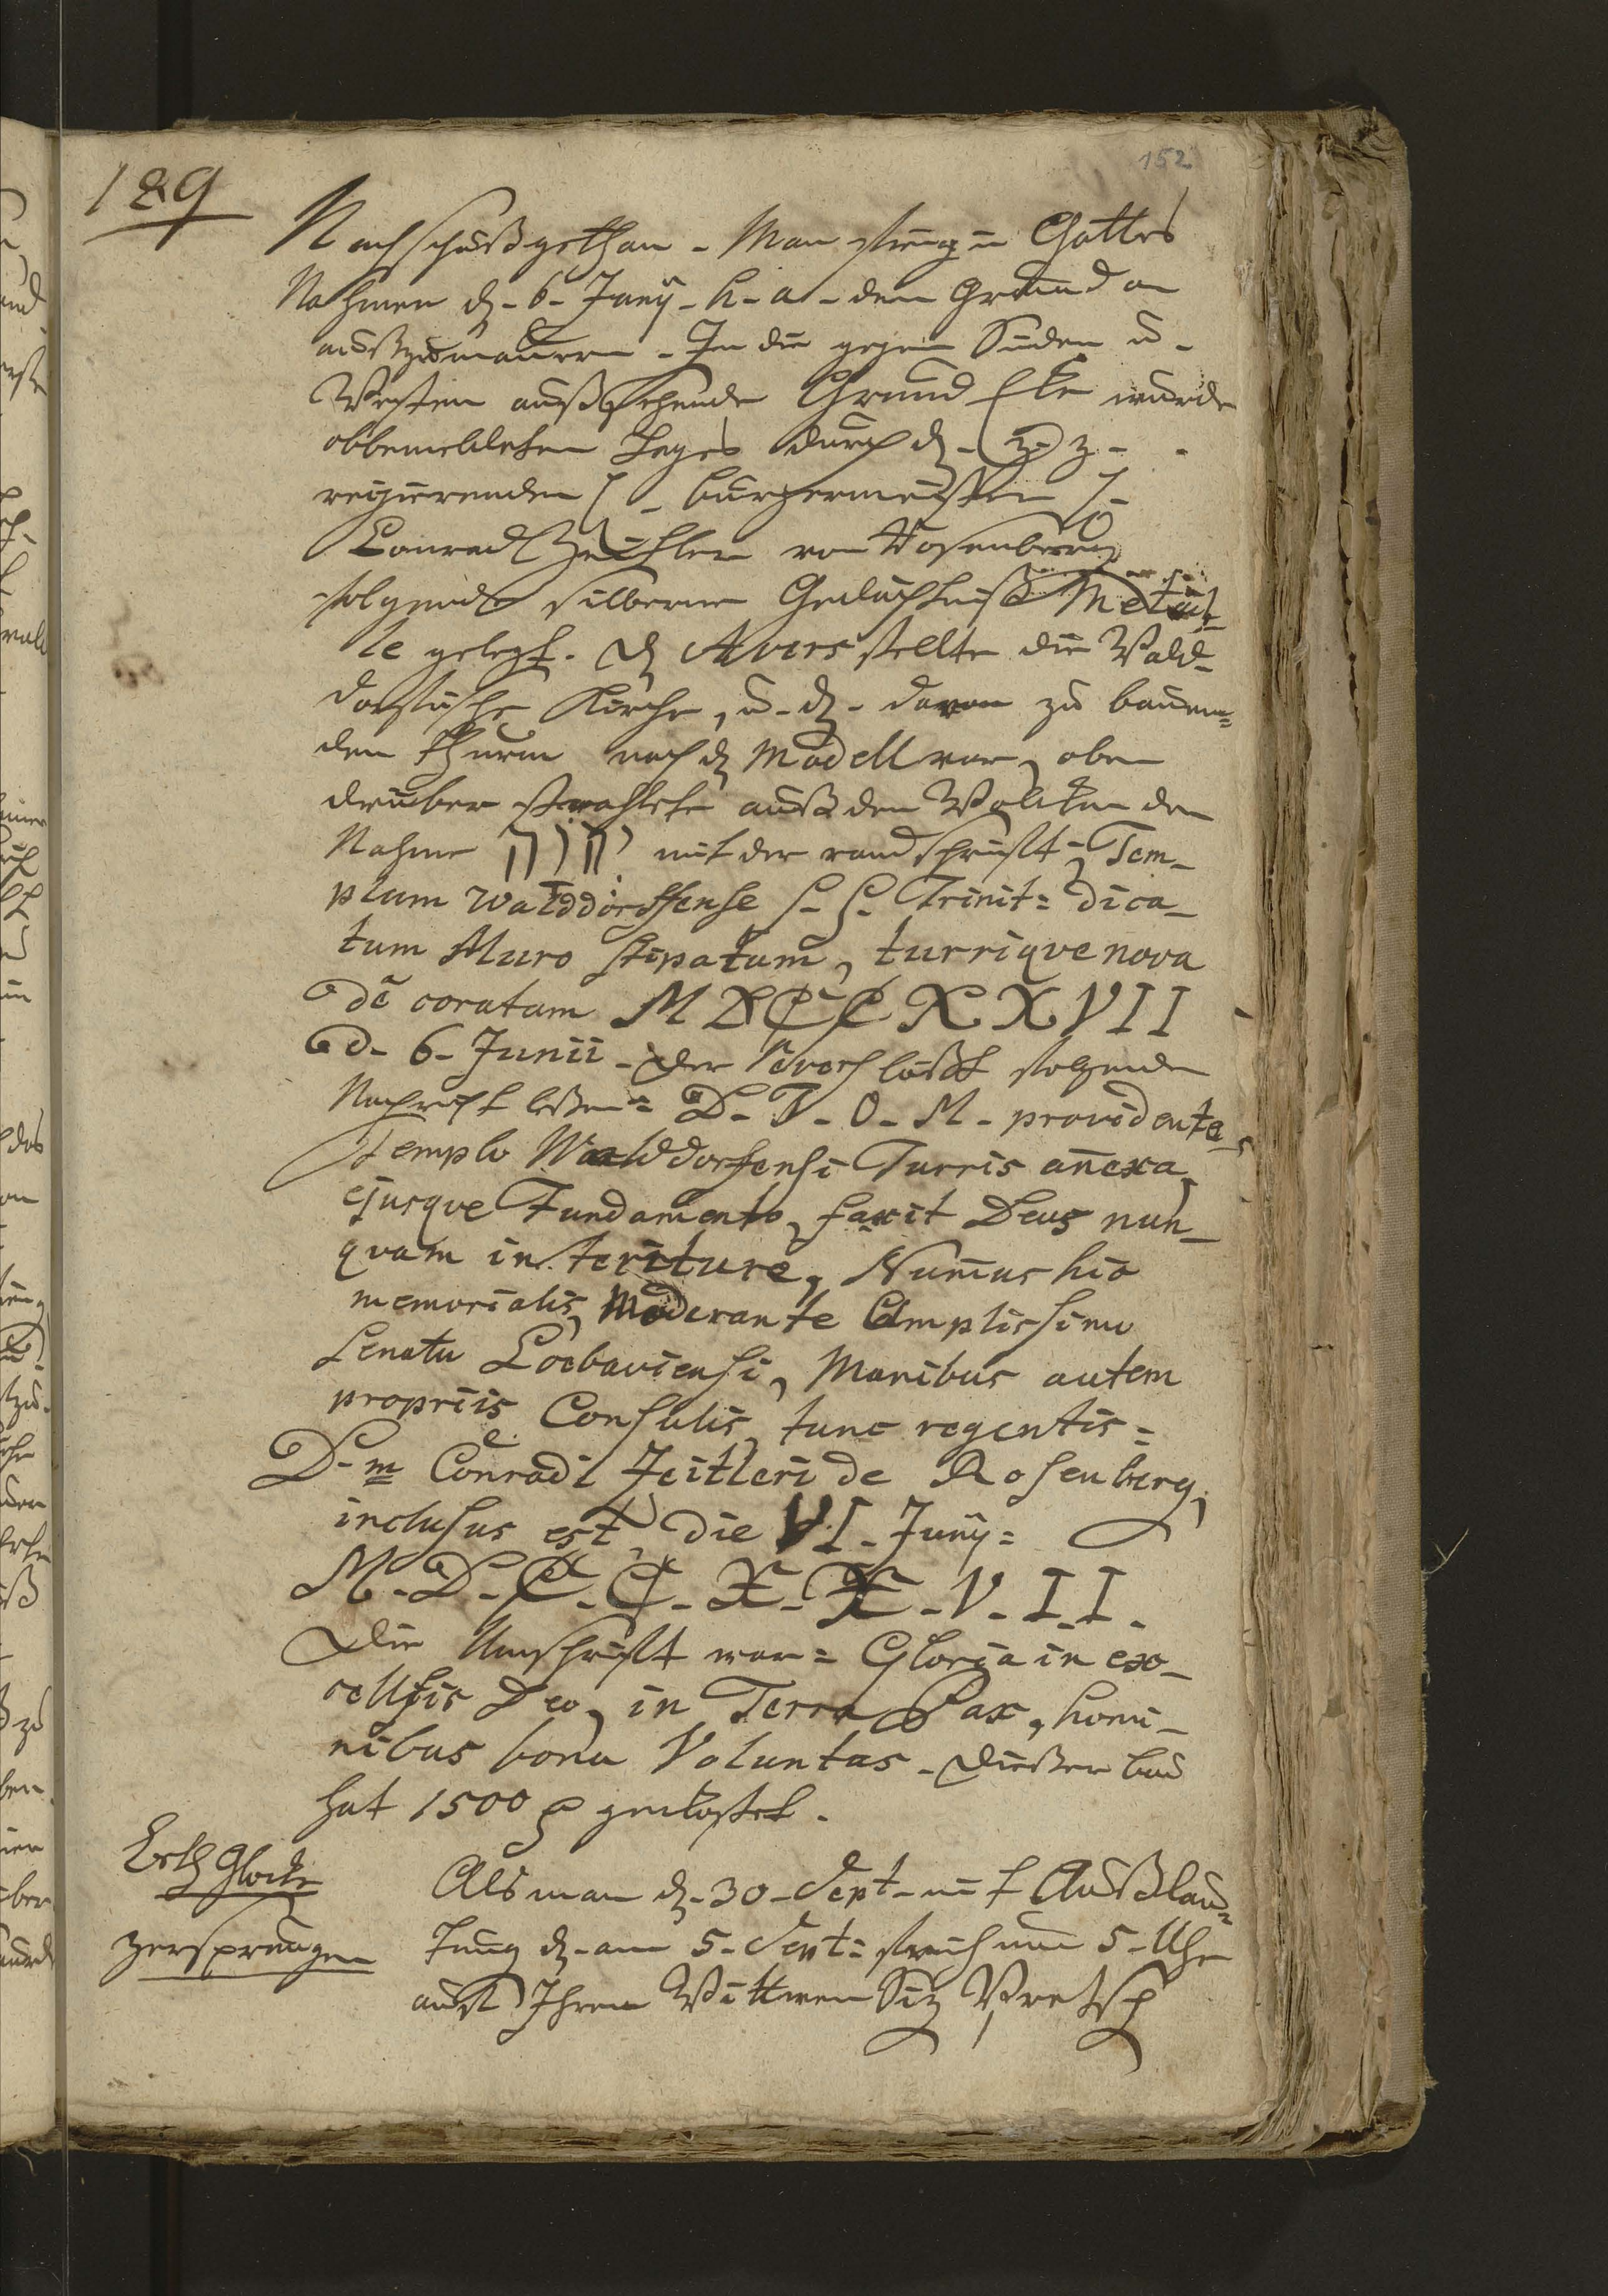 152
189
Nachschuß gethan. Man fieng in Gottes
Nahmen d. 6. Junij. h. a. den Grund an
auszumauren. In die gegen Süden u.
Westen außsehende Grund Eke wurde
obbemeldeten Tages durch d. z. z.
regierenden H. burgermeister H.
Conrad Zeitler von Rosenberg
folgende silberne Gedächtniß Metail-
le gelegt. d. Avers stellte die Wald-
dorfische Kirche, u. d. daran zu bauen=
den thurm nach d. Modell vor, oben
drüber strahlete auß den Wolken der
Nahme יהוה mit der randschrift, Tem-
plum Walddorffense S. S. Trinit: dica-
tum Muro stipatum, turrique nova
de coratum MDCCXXVII
d. 6. Junii. Der Revers läßt folgende
Nachricht leßen: D. T. O. M. providente
templo Walddorfensi Turris añexa
ejusque Fundamento, faxit Deus nun-
quam in terituro, Num̃us hic
memorialis, Moderante Amplissimo
Senatu Loebaviensi, Manibus autem
propriis Consulis, tunc regentis:
D.m Conradi Zeitleri de Rosenberg,
inclusus est, die VI. Junij:
M. D. C. C. X. X. V. I. I.
Die Umschrift war: Gloria in exc-
cellsis Deo, in Terra Pax, homi-
nibus bona Voluntas. Dießer bau
hat 1500 gekostet.
Beth Glocke
zersprungen
Als man d. 30. Sept. mit Außläu=
tung d. am 5. Sept: früh um 5. Uhr
auf Ihrem Wittwen Siz Pretsch